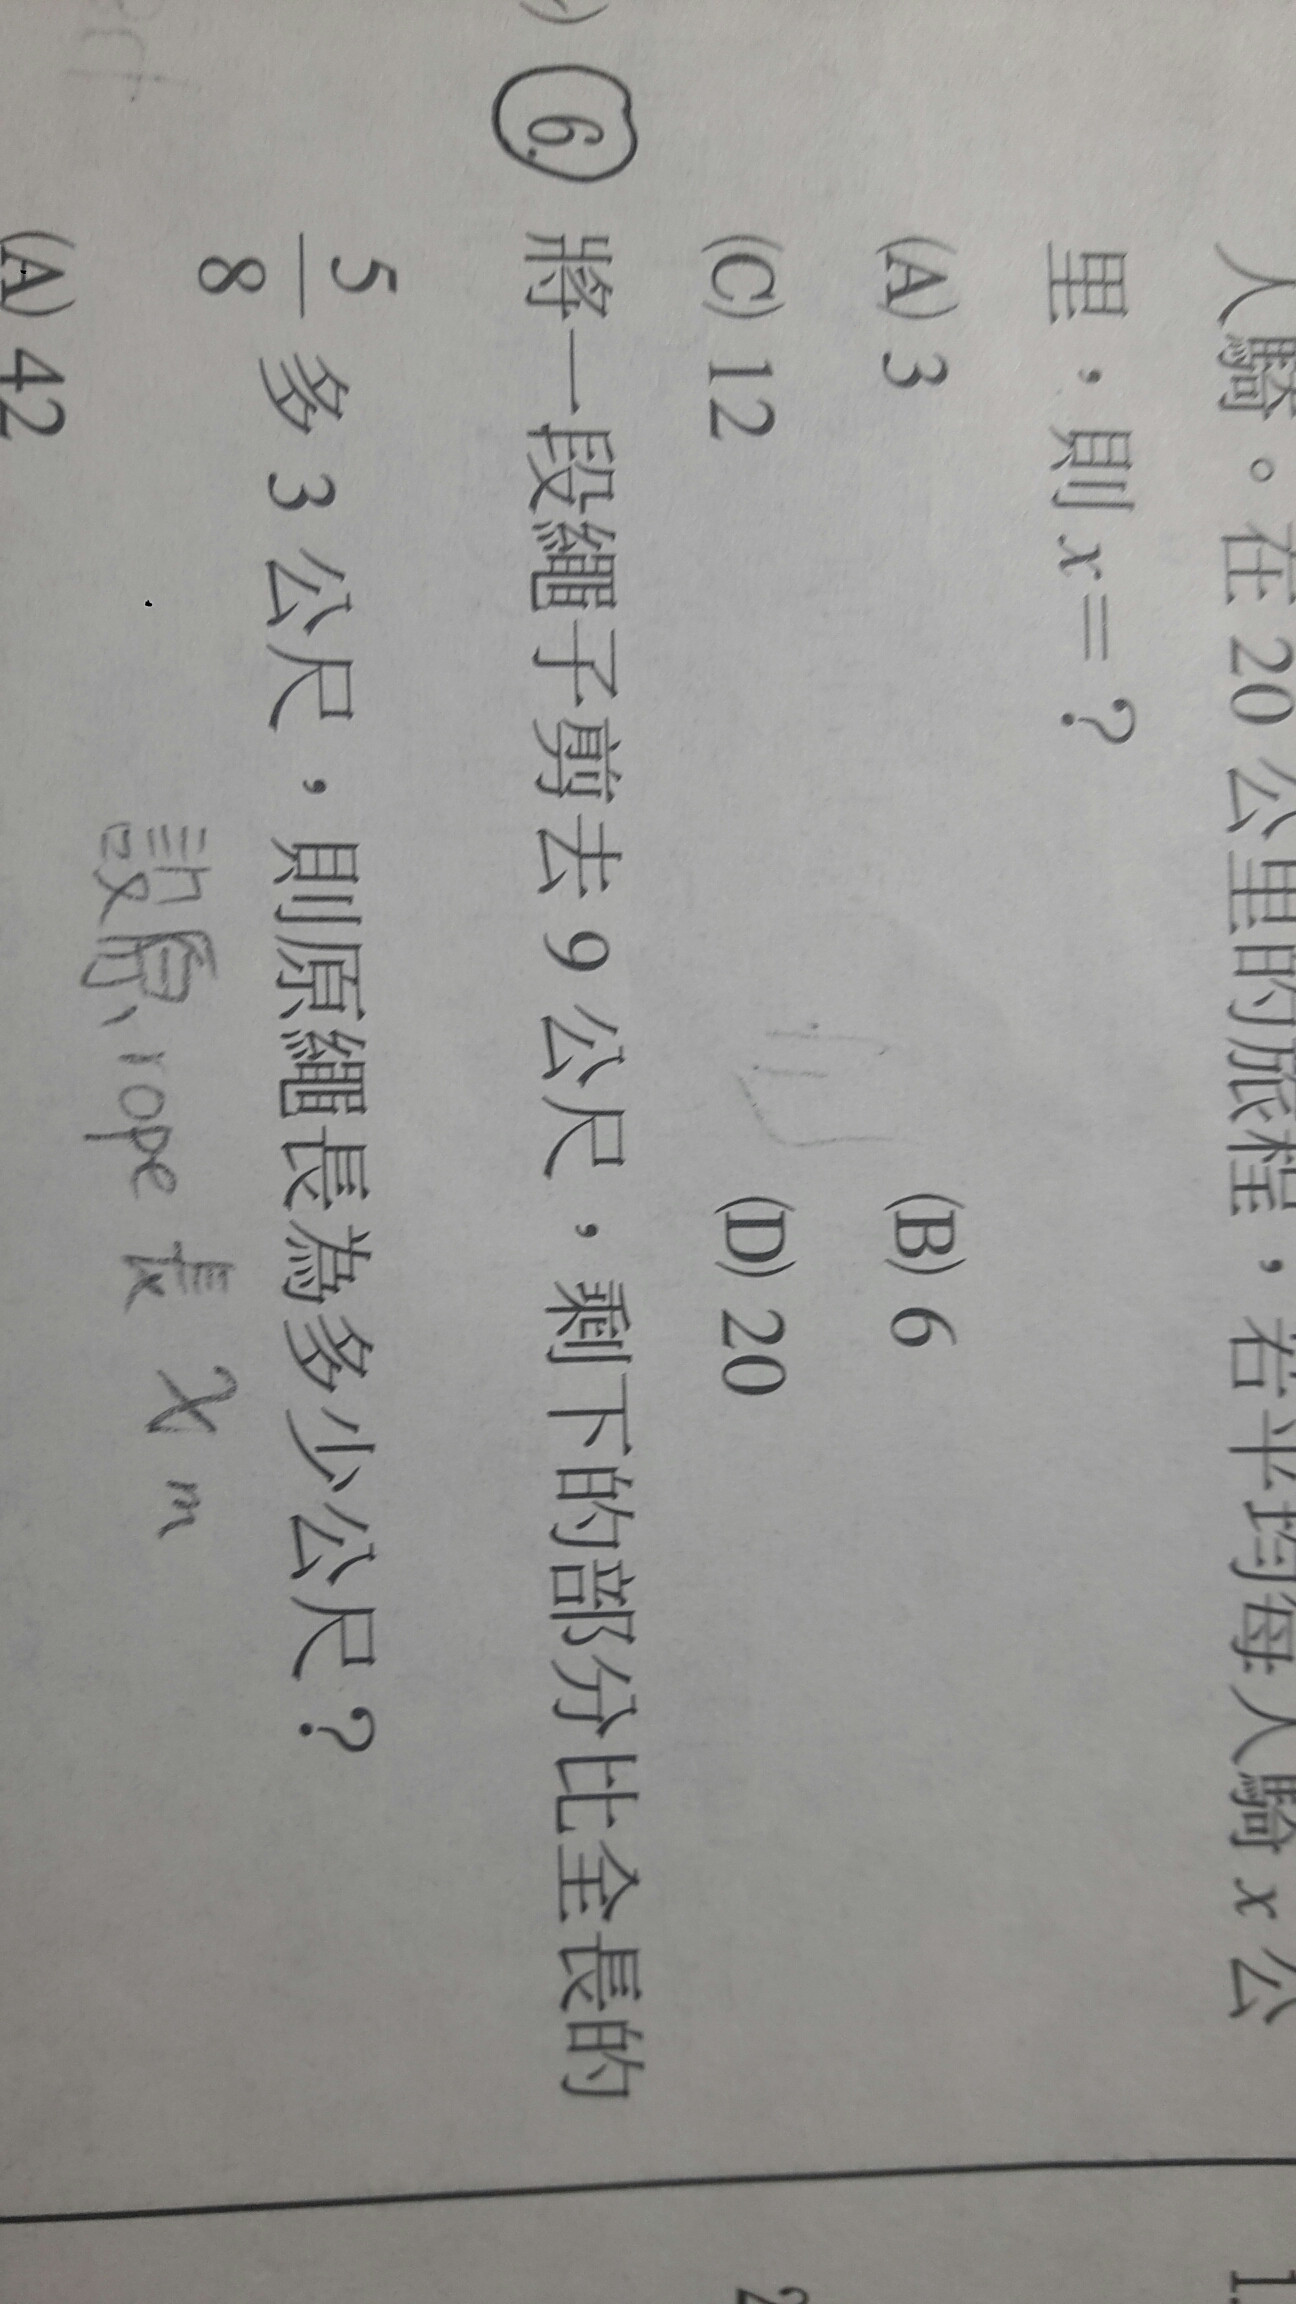 人騎。在 20 公里的旅程，若平均每人騎 x 公
里，則 x=？
(A) 3 (B) 6
(C) 12 (D) 20
6. 將一段繩子剪去 9 公尺，剩下的部分比全長的
5/8 多 3 公尺，則原繩長為多少公尺？
設原 rope 長 x m
(A) 42
1.
2